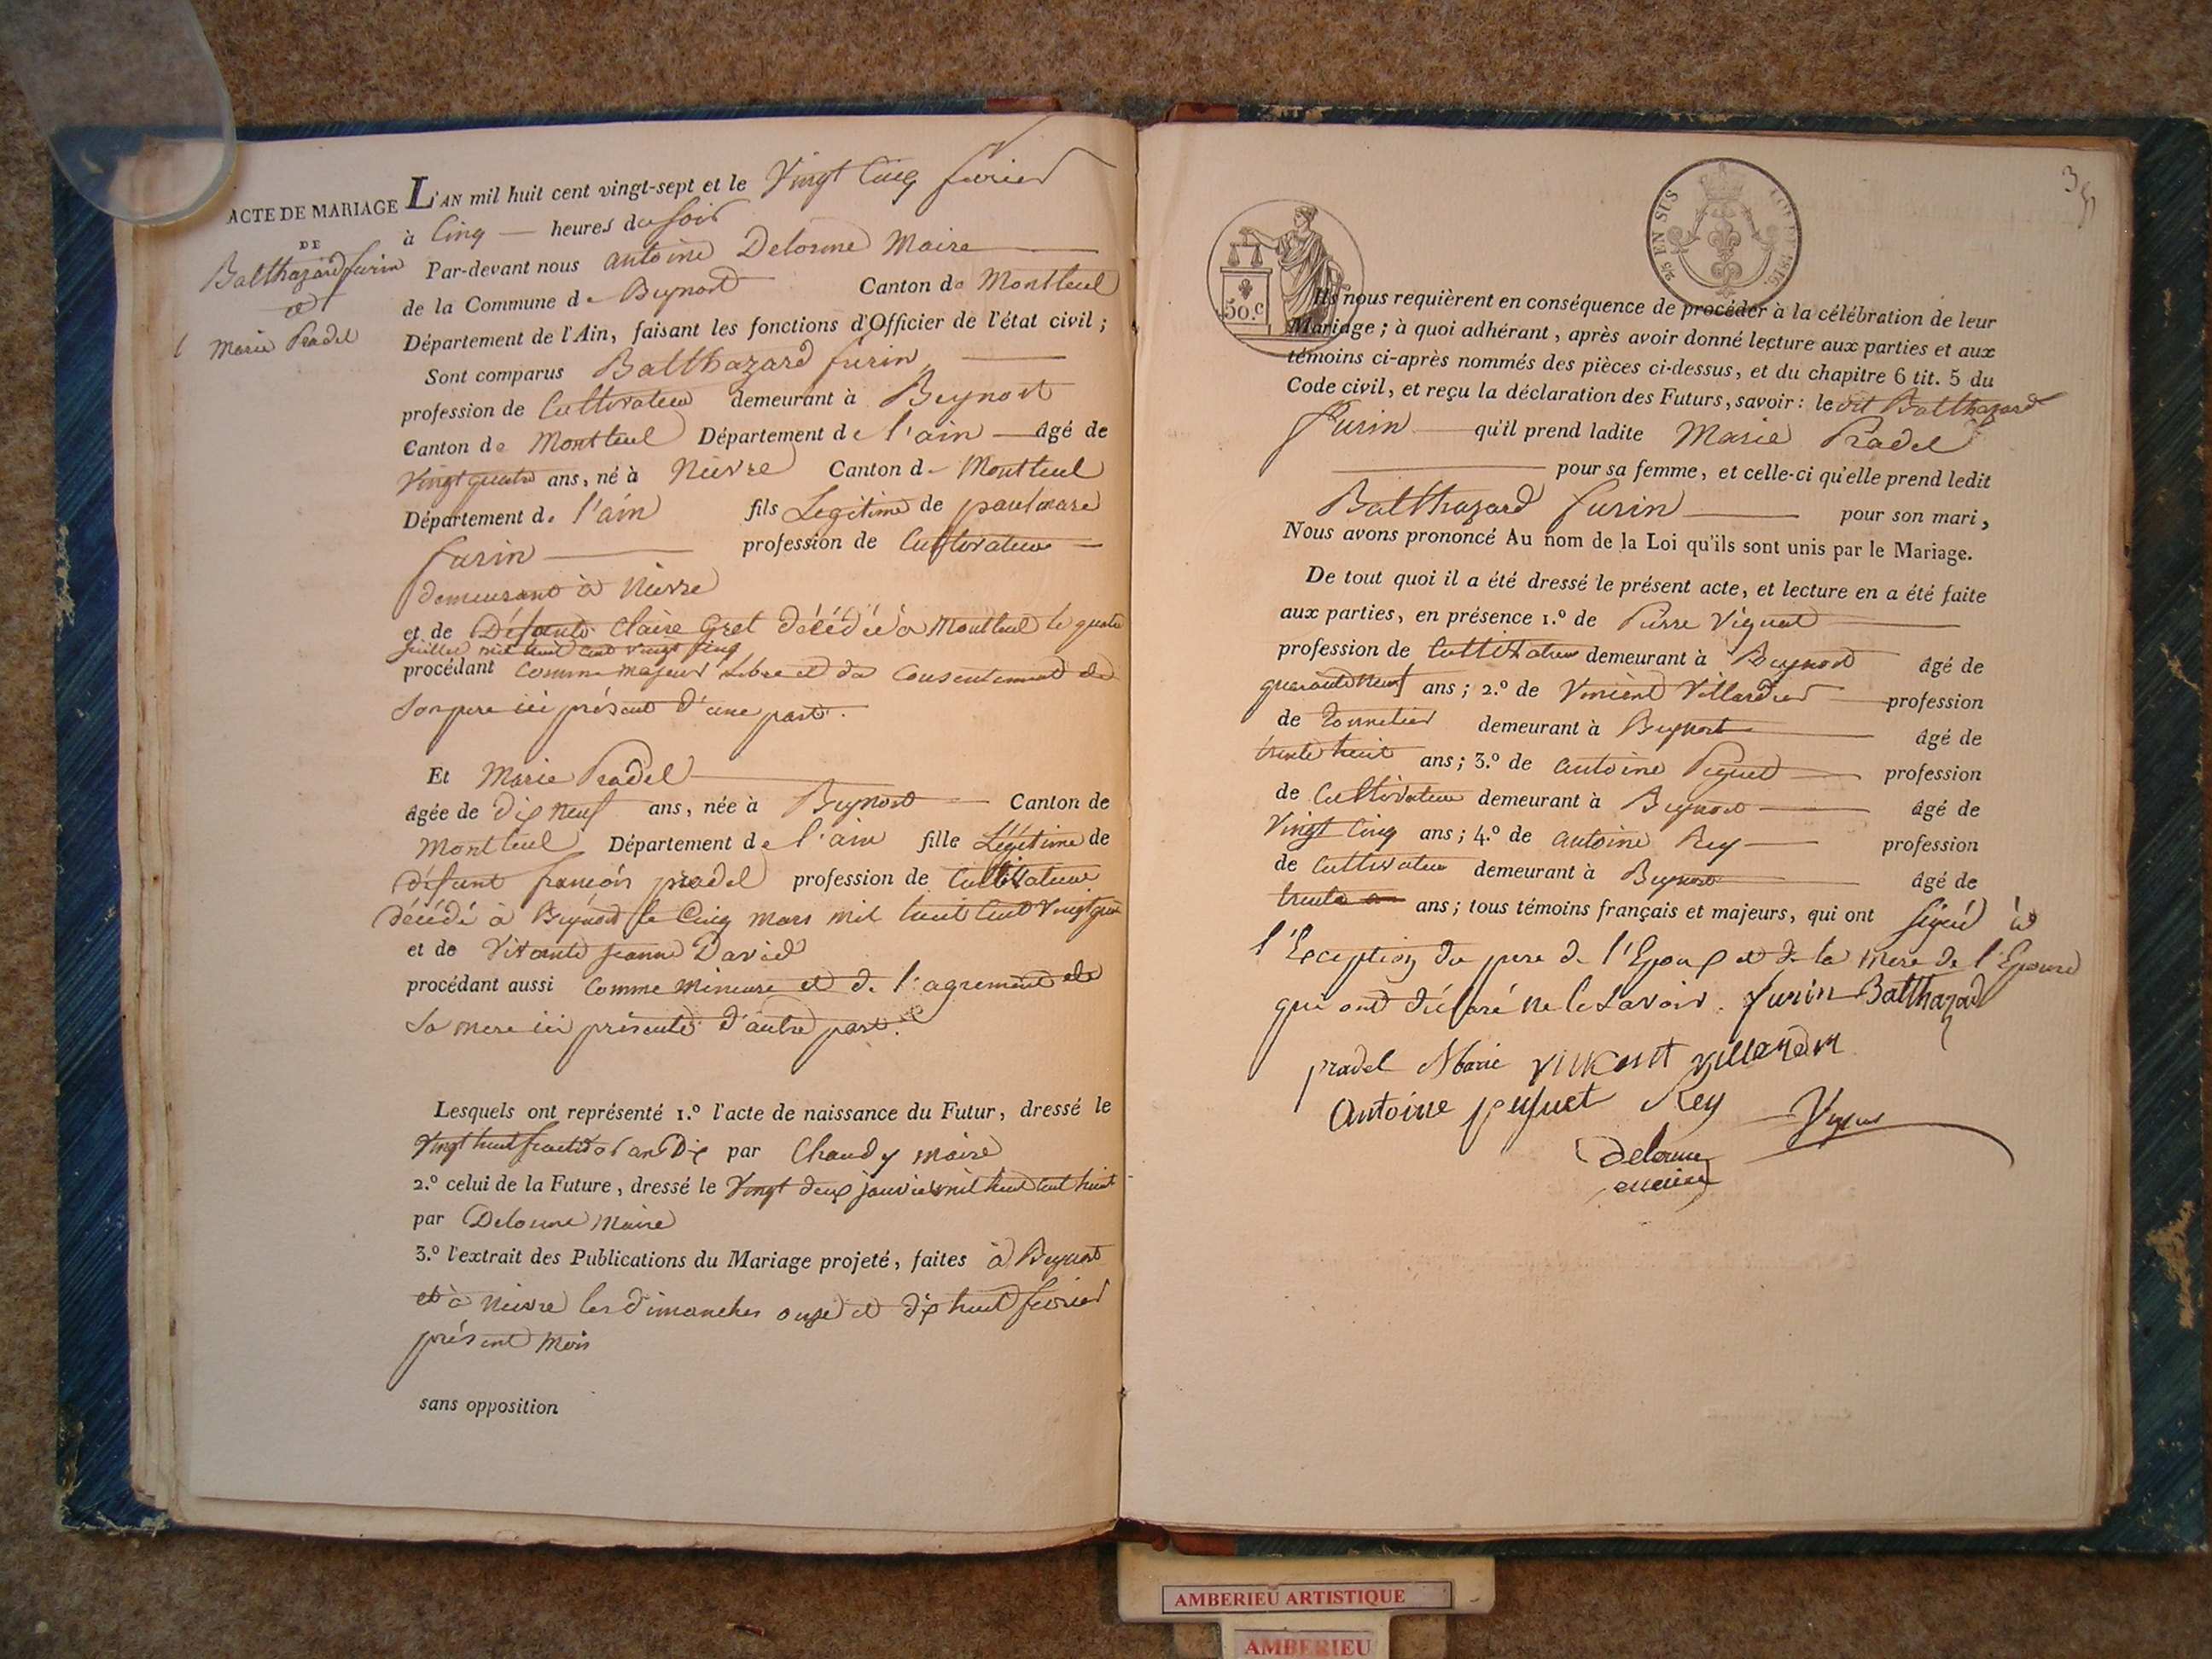 ACTE DE MARIAGE
DE
Balthazard furin
et
Marie Pradel
L'AN mil huit cent vingt-sept et le Vingt Cinq fevrier
à Cinq heures du soir
Par-devant nous antoine Delorme Maire
de la Commune de Beynost Canton de Montluel
Département de l'Ain, faisant les fonctions d'Officier de l'état civil ;
Sont comparus Balthazard furin
profession de Cultivateur demeurant à Beynost
Canton de Montluel Département de l'ain âgé de
Vingt quatre ans, né à Nievre Canton de Montluel
Département de l'ain fils Legitime de
furin profession de Cultivateur
demeurant à Nievre
et de Défunte Claire Gret décédée à Montluel le quatre
juillet mil huit cent vingt cinq
procédant comme majeur libre et du Consentement de
Son pere ici présent d'une part.
Et Marie Pradel
âgée de dix neuf ans, née à Beynost Canton de
Montluel Département de l'ain fille Légitime de
défunt françois pradel profession de Cultivateur
décédé à Beynost le Cinq mars mil huit Cent Vingt
et de Vivante jeanne David
procédant aussi Comme Mineure et de l'agrement de
Sa mere ici présente d'autre part.
Lesquels ont représenté 1.º l'acte de naissance du Futur, dressé le
Vingt huit fructidor an Dix par Chaudy maire
2.º celui de la Future, dressé le Vingt deux janvier mil huit cent huit
par Delorme Maire
3.º l'extrait des Publications du Mariage projeté, faites à Beynost
et à Nievre les dimanches onze et dix huit fevrier
présent mois
sans opposition
2/5 EN SUS LOI DE 1816.
50.C
Ils nous requièrent en conséquence de procéder à la célébration de leur
Mariage ; à quoi adhérant, après avoir donné lecture aux parties et aux
témoins ci-après nommés des pièces ci-dessus, et du chapitre 6 tit. 5 du
Code civil, et reçu la déclaration des Futurs, savoir : le dit Balthazard
Furin qu'il prend ladite Marie Pradel
pour sa femme, et celle-ci qu'elle prend ledit
Balthazard furin pour son mari,
Nous avons prononcé Au nom de la Loi qu'ils sont unis par le Mariage.
De tout quoi il a été dressé le présent acte, et lecture en a été faite
aux parties, en présence 1.º de Pierre Vignat
profession de Cultivateur demeurant à Beynost âgé de
quarante neuf ans ; 2.º de Vincent Villardier profession
de Tonnelier demeurant à Beynost âgé de
trente huit ans ; 3.º de antoine Peguet profession
de Cultivateur demeurant à Beynost âgé de
Vingt Cinq ans ; 4.º de antoine Rey profession
de Cultivateur demeurant à Beynost âgé de
trente ans ; tous témoins français et majeurs, qui ont signé à
l'Exception du pere de l'Epoux et de la mere de l'Epouse
qui ont déclaré ne le savoir. furin Balthazard
pradel Marie vincent
Antoine peguet Rey
delorme
maire
AMBERIEU ARTISTIQUE
AMBERIEU